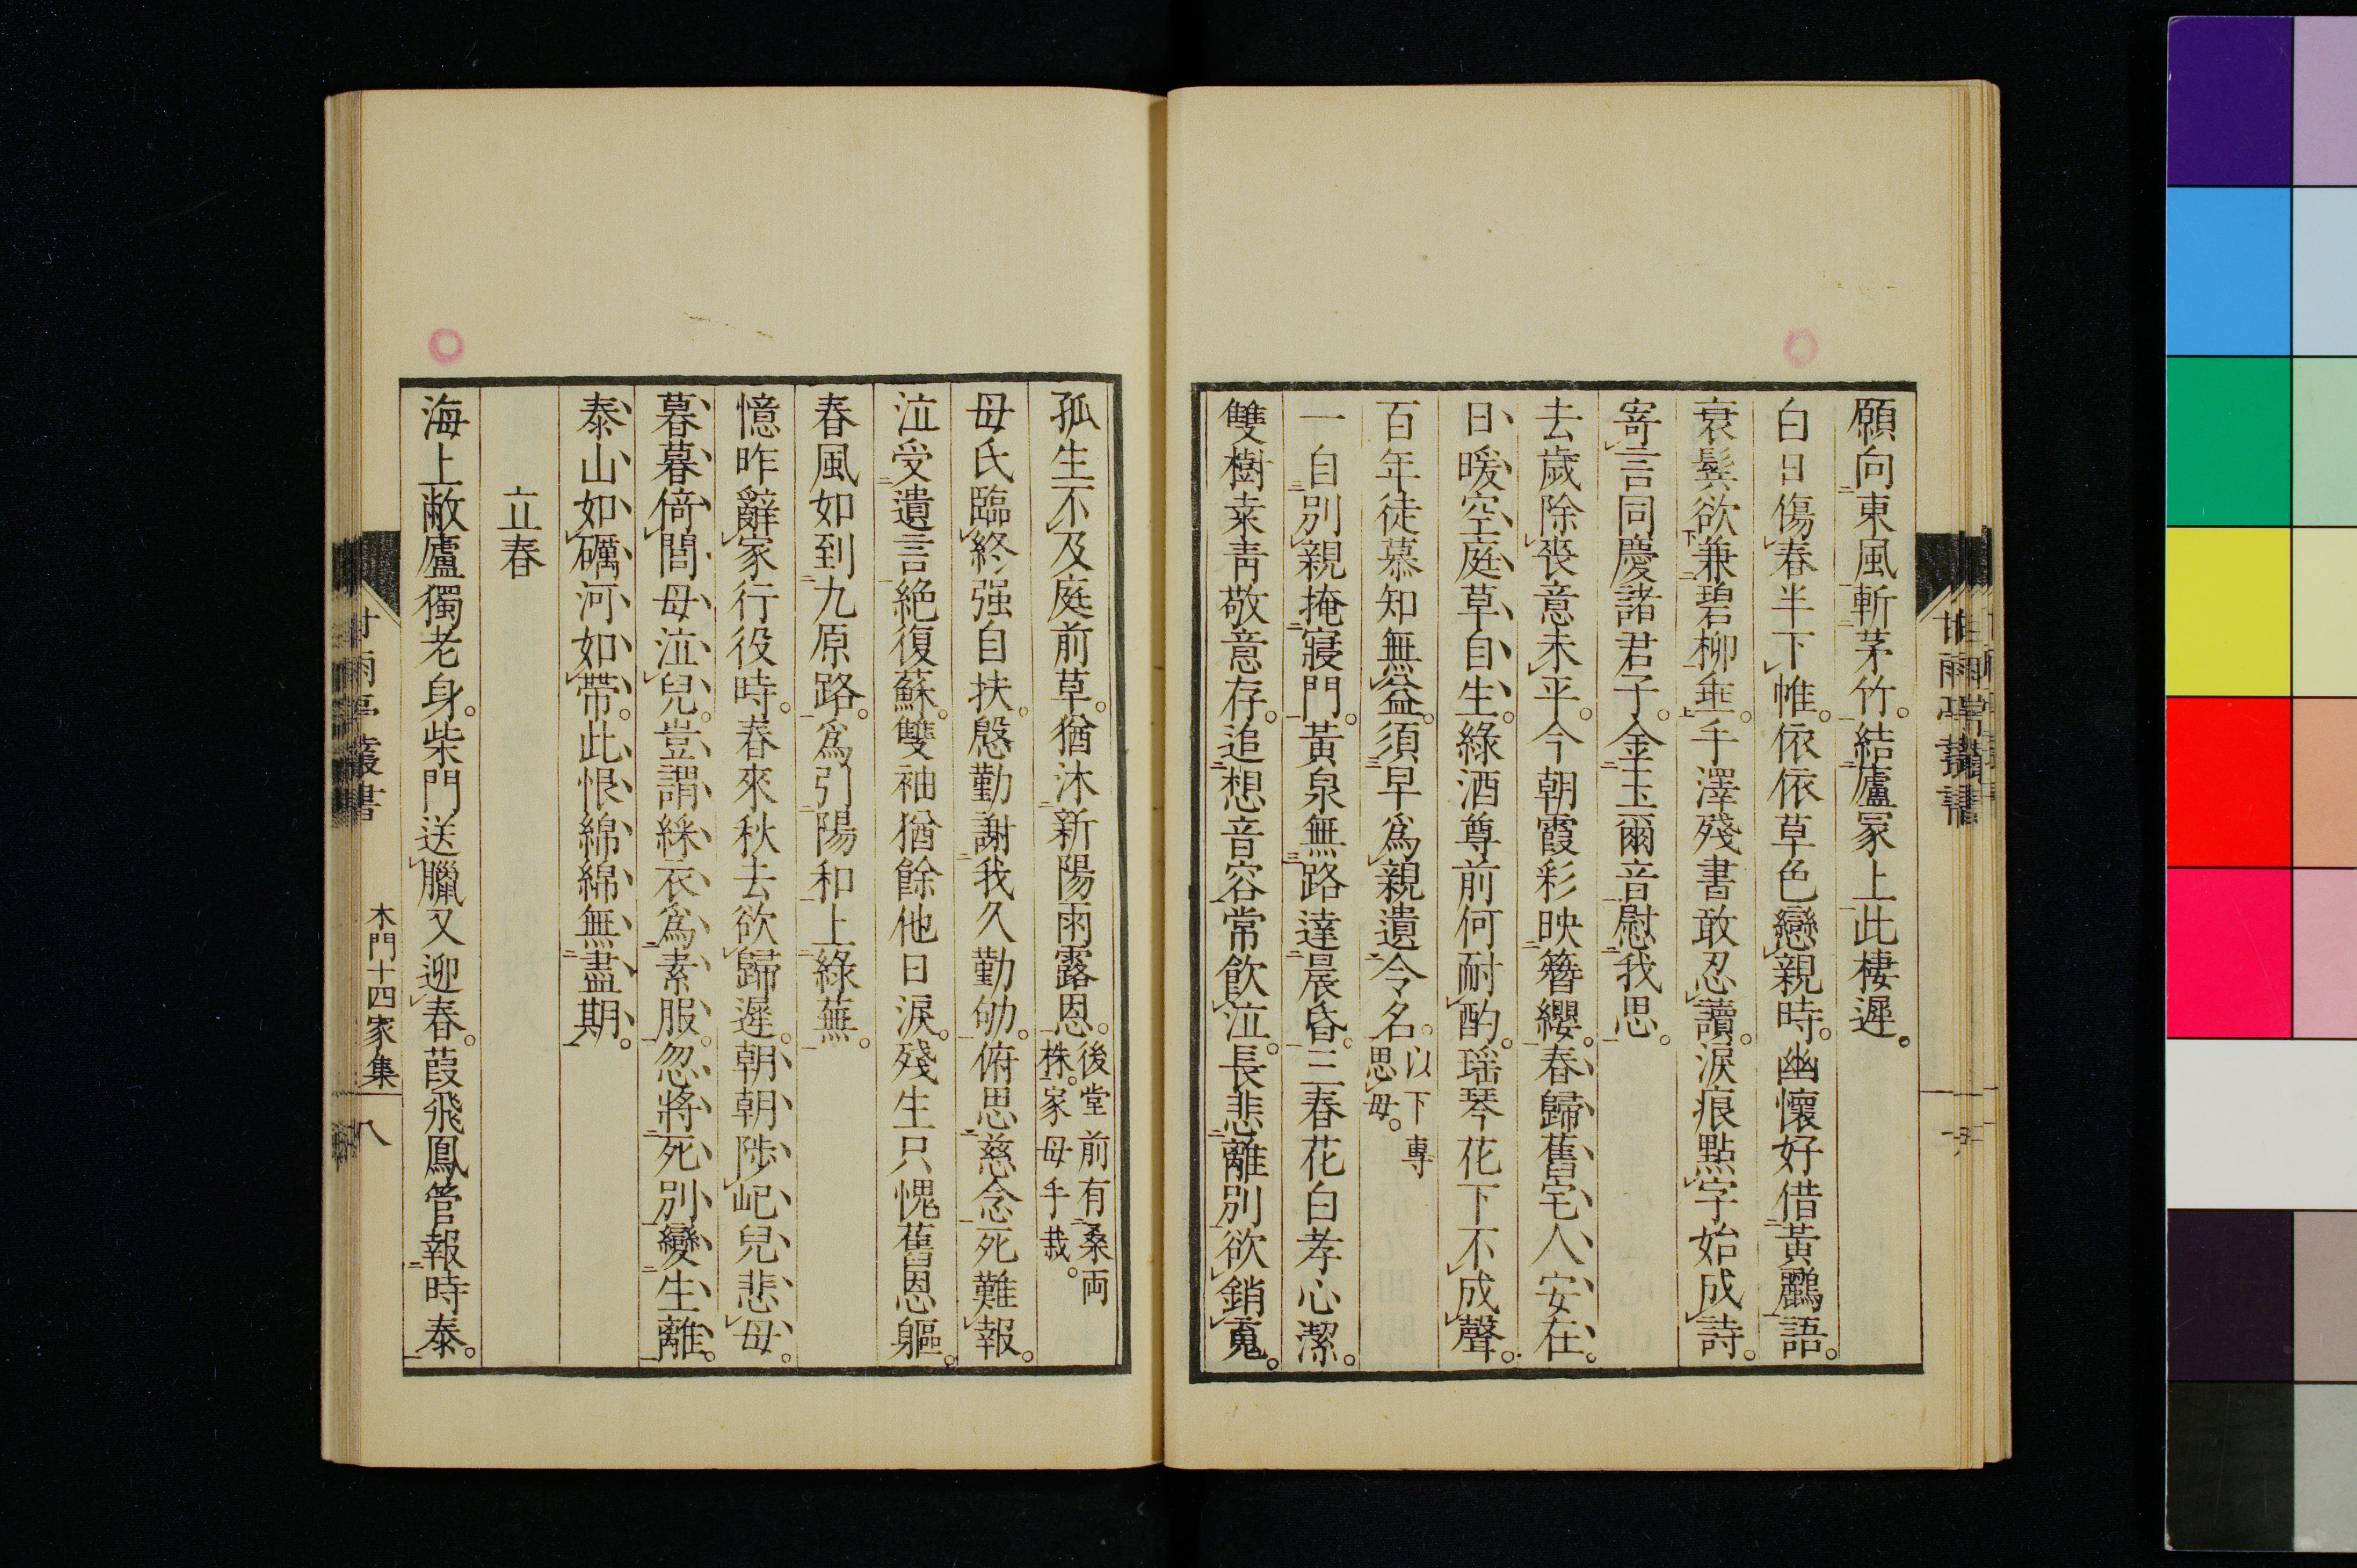 願向東風斬茅竹。結廬冢上此棲遲。
白日傷春半下帷。依依草色戀親時。幽懷好借黃鸝語。
衰鬂欲兼碧柳垂。手澤殘書敢忍讀。淚痕點字始成詩。
寄言同慶諸君子。金玉爾音慰我思。
去歲除喪意未平。今朝霞彩映簪纓。春歸舊宅人安在。
日暖空庭草自生。綠酒尊前何耐酌。瑶琴花下不成聲。
百年徒慕知無益。須早爲親遺令名。以下專
思母。
一自別親掩寢門。黃泉無路達晨昏。三春花白孝心潔。
雙樹桒靑敬意存。追想音容常飮泣。長悲離別欲銷䰟。
孤生不及庭前草。猶沐新陽雨露恩。後堂前有桑両
株。家母手栽。
母氏臨終强自扶。慇勤謝我久勤劬。俯思慈念死難報。
泣受遺言絶復蘇。雙袖猶餘他日淚。殘生只愧舊恩軀。
春風如到九原路。爲引陽和上綠蕪。
憶昨辭家行役時。春來秋去欲歸遲。朝朝陟屺兒悲母。
暮暮倚閭母泣兒。豈謂綵衣爲素服。忽將死別變生離。
泰山如礪河如帶。此恨綿綿無盡期。
立春
海上敝廬獨老身。柴門送臘又迎春。葭飛鳳管報時泰。
甘雨亭叢書
木門十四家集
八